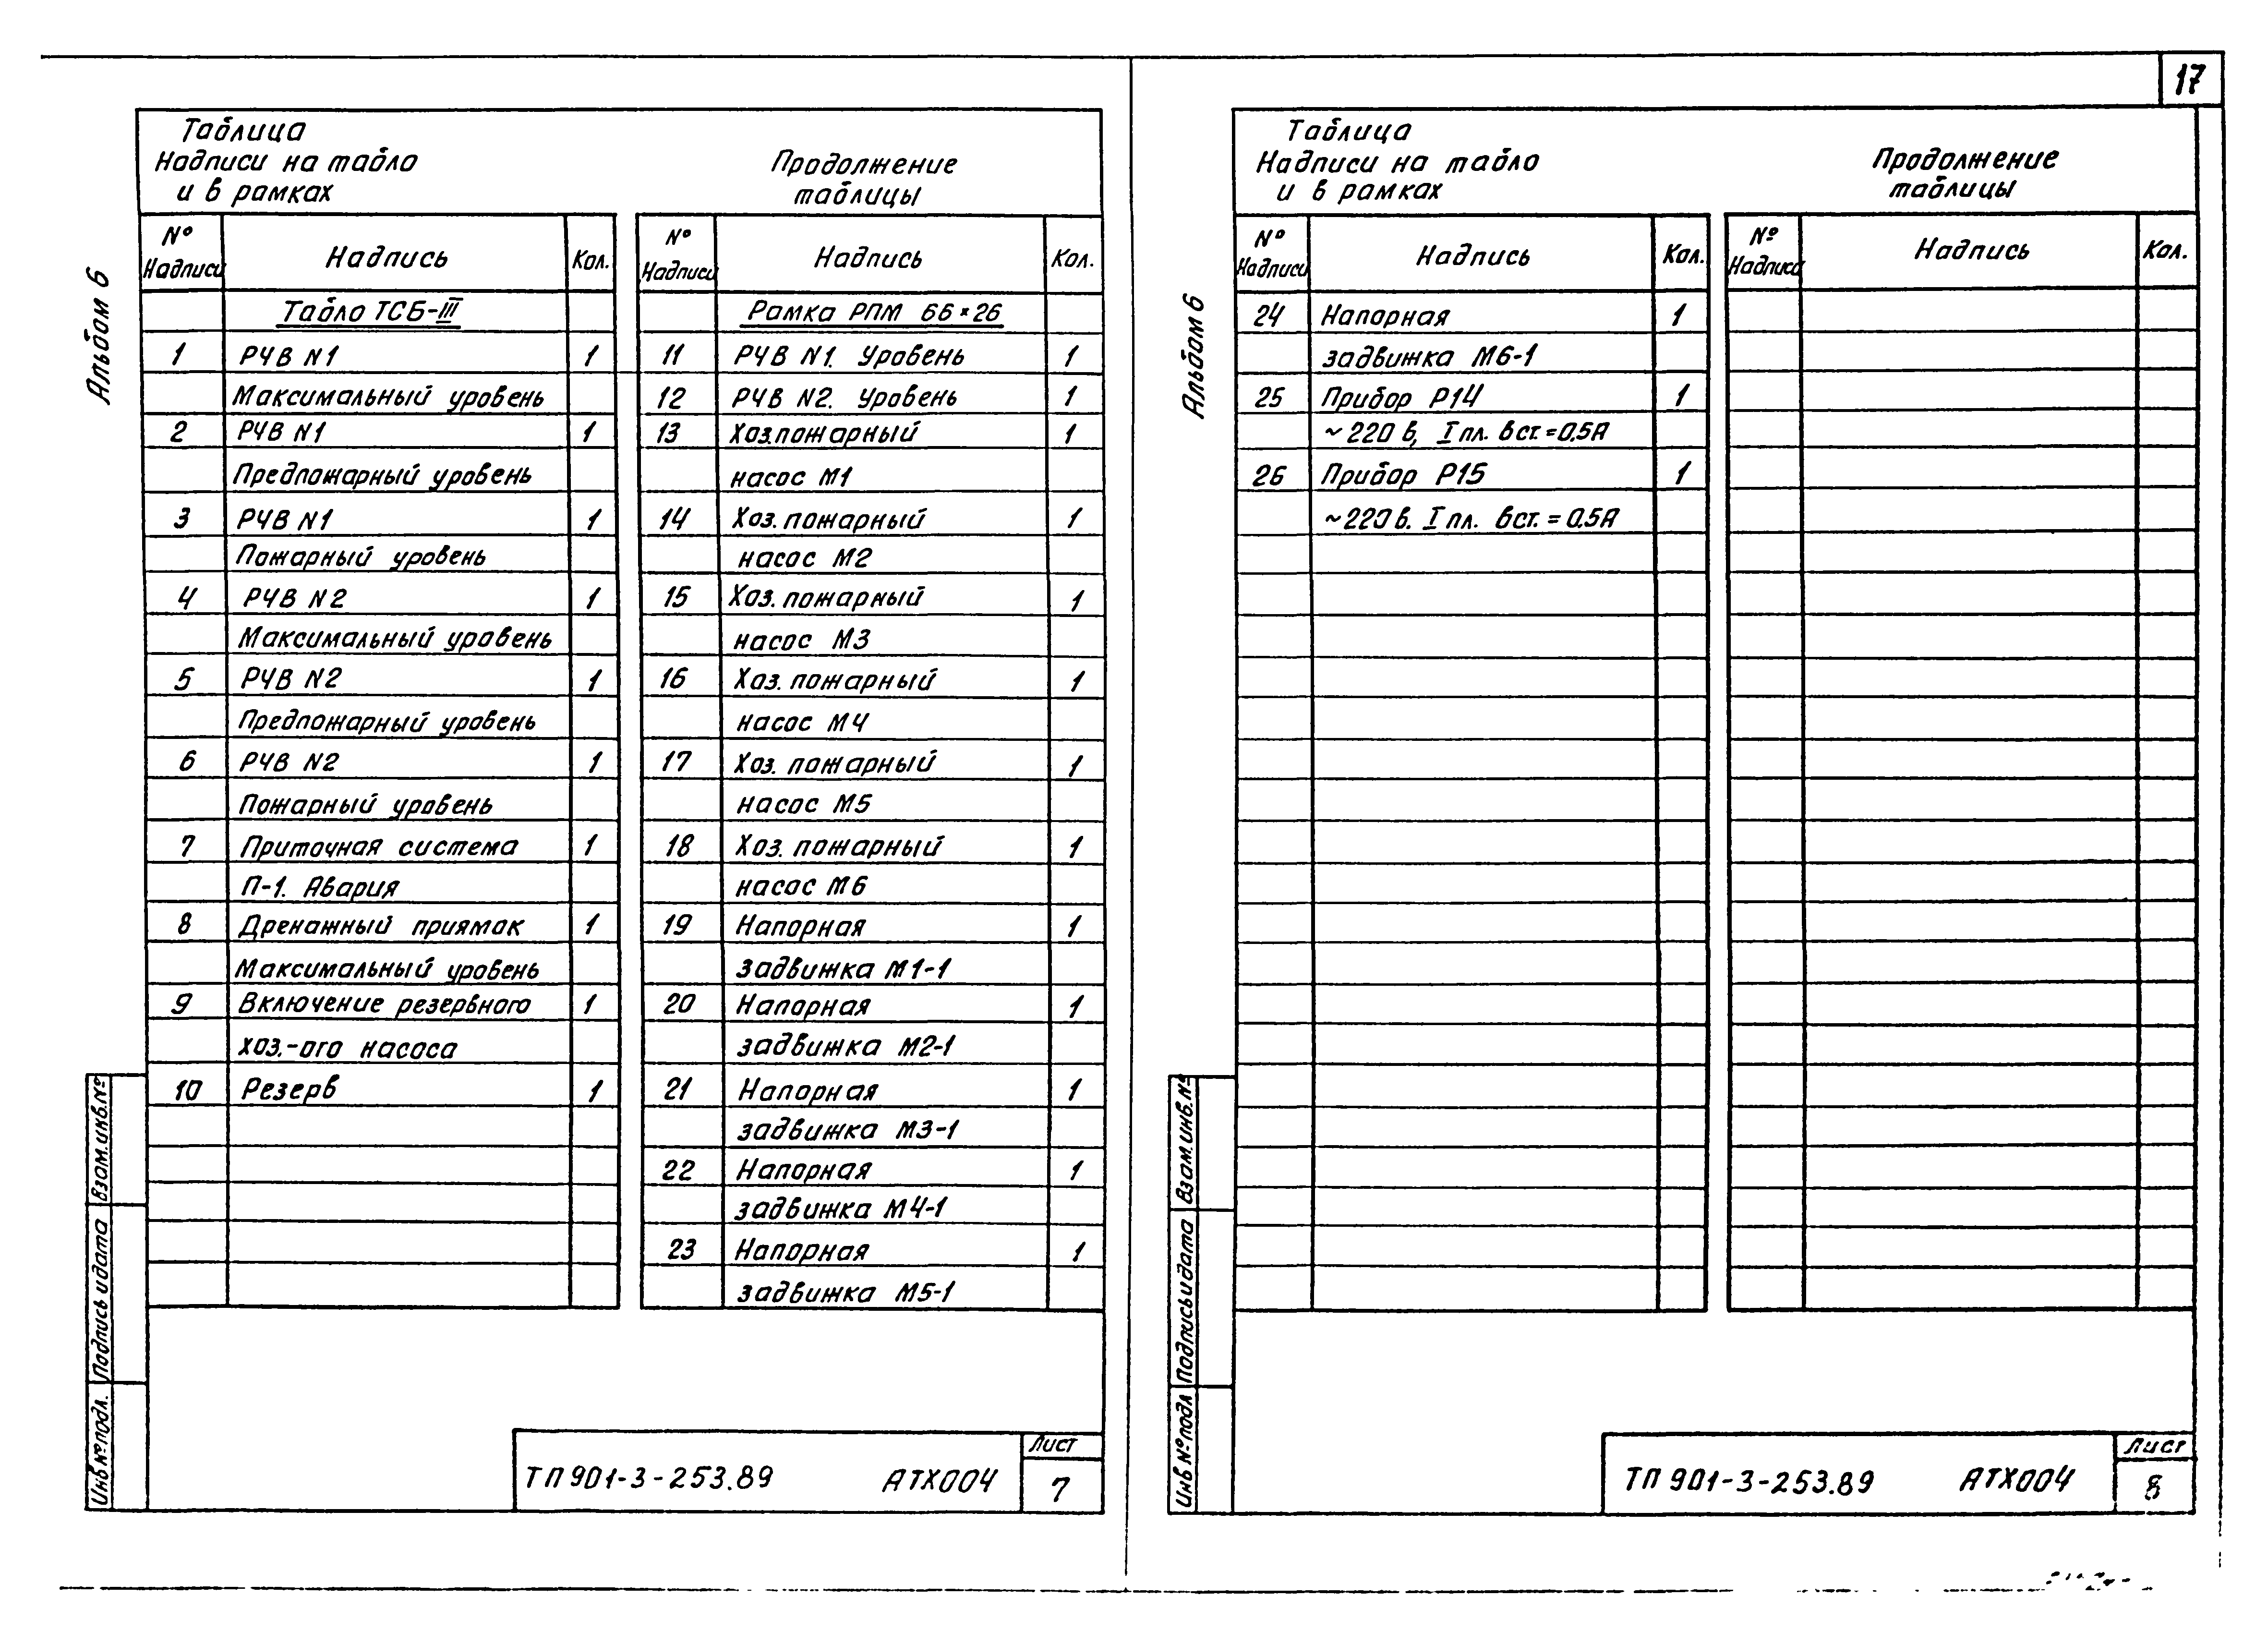 17
Альбом 6
Таблица
Надписи на табло
и в рамках
Продолжение
таблицы
№ Надписи Надпись Кол.
Табло ТСБ-III
1 РЧВ N1 1
Максимальный уровень
2 РЧВ N1 1
Предпожарный уровень
3 РЧВ N1 1
Пожарный уровень
4 РЧВ N2 1
Максимальный уровень
5 РЧВ N2 1
Предпожарный уровень
6 РЧВ N2 1
Пожарный уровень
7 Приточная система 1
П-1. Авария
8 Дренажный приямок 1
Максимальный уровень
9 Включение резервного 1
хоз.-ого насоса
10 Резерв 1
№ Надписи Надпись Кол.
Рамка РПМ 66×26
11 РЧВ N1. Уровень 1
12 РЧВ N2. Уровень 1
13 Хоз.пожарный 1
насос М1
14 Хоз. пожарный 1
насос М2
15 Хоз. пожарный 1
насос М3
16 Хоз. пожарный 1
насос М4
17 Хоз. пожарный 1
насос М5
18 Хоз. пожарный 1
насос М6
19 Напорная 1
задвижка М1-1
20 Напорная 1
задвижка М2-1
21 Напорная 1
задвижка М3-1
22 Напорная 1
задвижка М4-1
23 Напорная 1
задвижка М5-1
Взам.инв.№
Подпись и дата
Инв № подл.
ТП 901-3-253.89 АТХ004
Лист
7
Альбом 6
Таблица
Надписи на табло
и в рамках
Продолжение
таблицы
№ Надписи Надпись Кол.
24 Напорная 1
задвижка М6-1
25 Прибор Р14 1
~220 в, I пл. вст.=0.5А
26 Прибор Р15 1
~220 в. I пл. вст. = 0.5А
№ Надписи Надпись Кол.
Взам.инв.№
Подпись и дата
Инв № подл
ТП 901-3-253.89 АТХ004
Лист
8